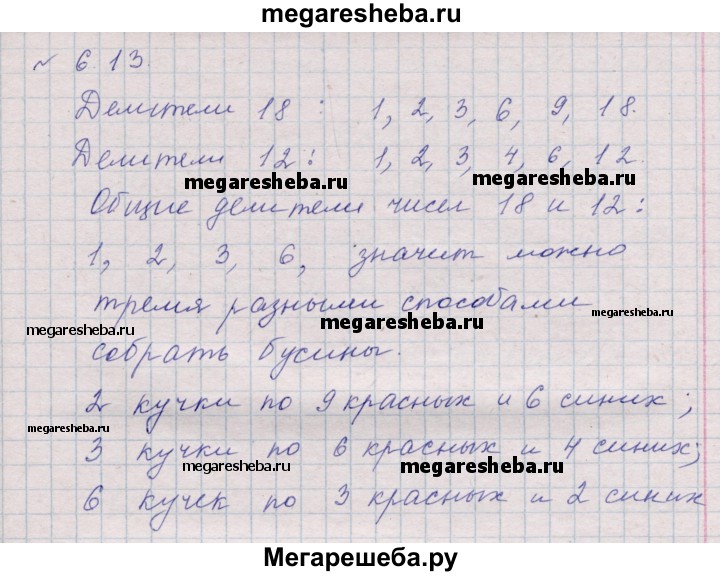 megaresheba.ru
№ 6.13.
Делители 18 : 1, 2, 3, 6, 9, 18.
Делители 12: 1, 2, 3, 4, 6, 12.
megaresheba.ru megaresheba.ru
Общие делители чисел 18 и 12:
1, 2, 3, 6, значит можно
тремя разными способами
megaresheba.ru megaresheba.ru megaresheba.ru
собрать бусины.
2 кучки по 9 красных и 6 синих;
megaresheba.ru
3 кучки по 6 красных и 4 синих;
megaresheba.ru megaresheba.ru
6 кучек по 3 красных и 2 синих
Мегарешеба.ру